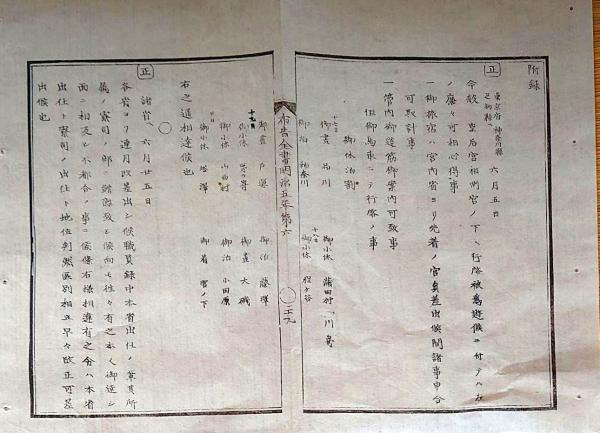 附録
正
東京府 神奈川縣
足柄縣ヘ 六月五日
今般 皇后宮相州宮ノ下ヘ行啓被為遊候ニ付テハ左
ノ廉々可相心得事
一御旅宿ハ宮内省ヨリ先着ノ官員差出候間諸事申合
可取計事
一管内御道筋御案内可致事
但御馬車ニテ行啓ノ事
御休泊割
十七日
御晝 品川 御小休 蒲田村 川崎
御泊 神奈川 十八日 御小休 程ヶ谷
布告全書明治五年第六
三十九
御晝 戸塚 御泊 藤澤
十九日
御小休 御晝 大磯
御小休 山西村 御泊 小田原
廿日
御小休 塔澤 御着 宮ノ下
右之通相達候也
正
諸省ヘ 六月廿五日
各省ヨリ連月改差出シ候職員録中本省出仕ノ輩其所
属ノ寮司ノ部ニ錯綜致シ候向モ往々有之本人御達シ
面ニ相反シ不都合ノ事ニ候條右様相違有之分ハ本省
出仕ト寮司ノ出仕ト地位判然區別相立早々改正可差
出候也